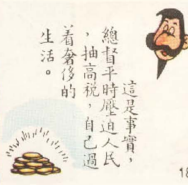 這是事實，
總督平時壓迫人民
，抽高税，自己過
着奢侈的
生活。
18